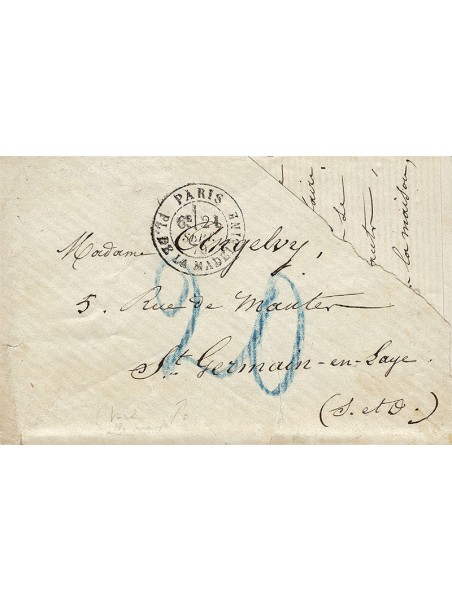 PARIS
6E 21
SEPT
PL. DE LA MADELEINE
Madame Angelvy,
5. Rue de Mantes
St Germain-en-Laye.
(S. et O.)
20
la maison